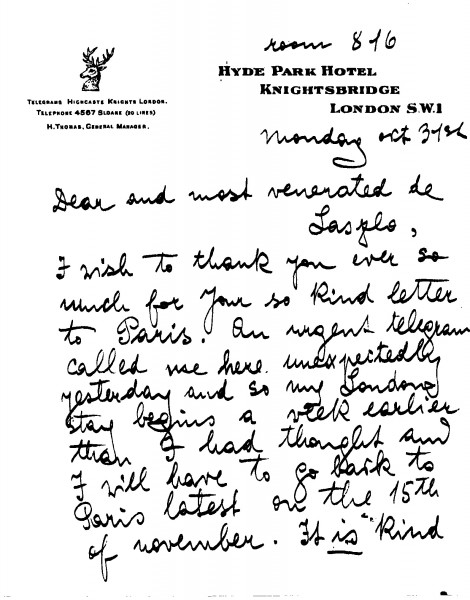 room 816
HYDE PARK HOTEL
KNIGHTSBRIDGE
LONDON S.W.1
TELEGRAMS HIGHCASTE KNIGHTS LONDON.
TELEPHONE 4567 SLOANE (20 LINES)
H. THOMAS, GENERAL MANAGER.
Monday oct 31st
Dear and most venerated de
Laszlo,
I wish to thank you ever so
much for your so kind letter
to Paris. An urgent telegram
called me here unexpectedly
yesterday and so my London
stay begins a week earlier
than I had thought and
I will have to go back to
Paris latest on the 15th
of november. It is kind